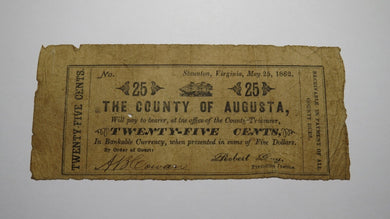 TWENTY-FIVE CENTS.
No.
Staunton, Virginia, May 25, 1862.
25 25
THE COUNTY OF AUGUSTA,
Will pay to bearer, at the office of the County Treasurer,
TWENTY-FIVE CENTS,
In Bankable Currency, when presented in sums of Five Dollars.
By Order of Court:
RECEIVABLE IN PAYMENT OF ALL
COUNTY DUES.